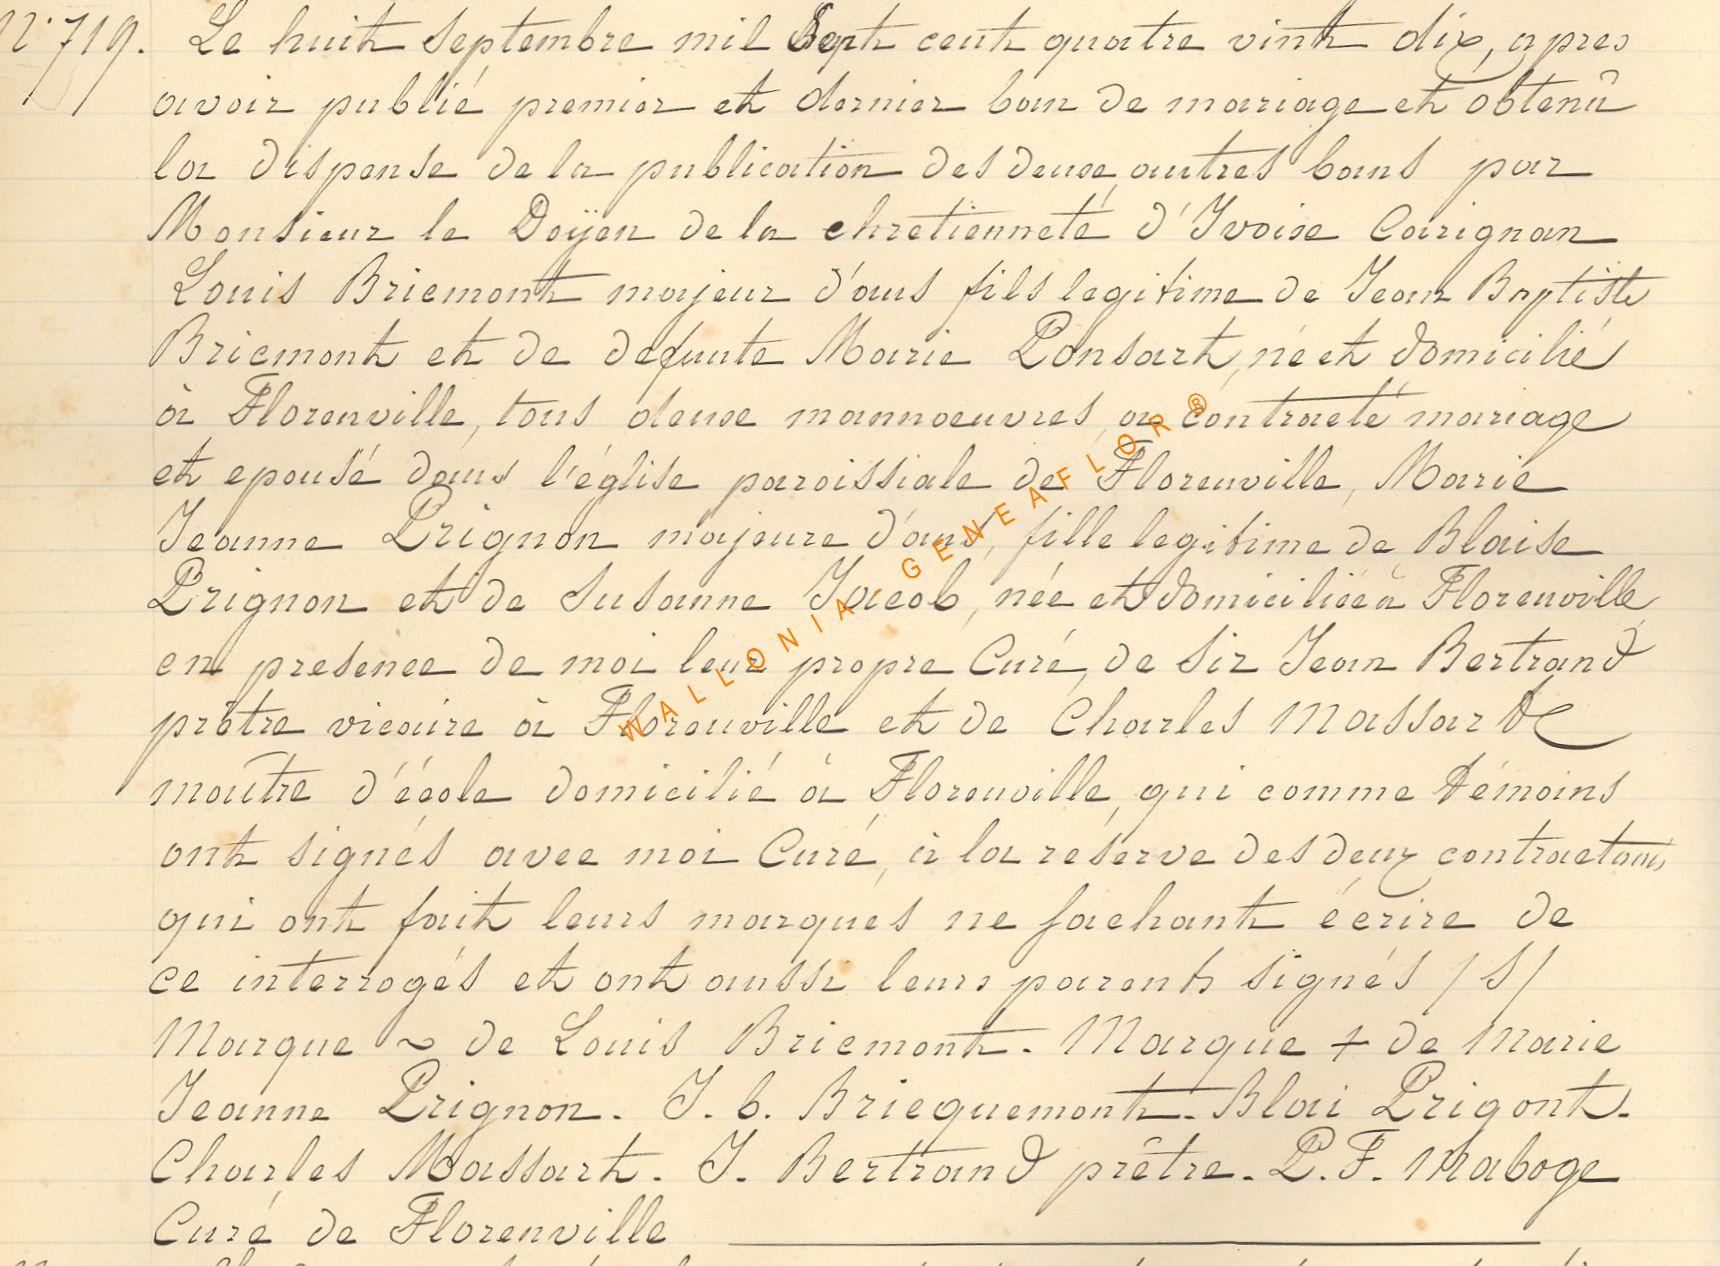 N° 719. Le huit Septembre mil Sept cent quatre vint dix, apres
avoir publié premier et dernier ban de mariage et obtenû
la dispense de la publication des deuxe autres bans par
Monsieur le Doÿen de la chretienneté d'Ivoise Carignan
Louis Briemont majeur d'ans fils legitime de Jean Baptiste
Briemont et de defunte Marie Ponsart, né et domicilié
à Florenville, tous deuxe mannoeuvres, a contracté mariage
et epousé dans l'église paroissiale de Florenville, Marie
Jeanne Prignon majeure d'ans, fille legitime de Blaise
Prignon et de Susanne Jacob, née et domiciliée à Florenville,
en presence de moi leur propre Curé, de Sir Jean Bertrand
prêtre vicaire à Florenville et de Charles Massart
maître d'école domicilié à Florenville, qui comme témoins
ont signés avec moi Curé, à la réserve des deux contractans
qui ont fait leurs marques ne sachant écrire de
ce interrogés et ont aussi leurs parents signés /S/
Marque ~ de Louis Briemont. Marque + de Marie
Jeanne Prignon. J. b. Briequemont. Blai Prigont.
Charles Massart. J. Bertrand prêtre. P. F. Maboge
Curé de Florenville
WALLONIA GENEAFLOR ®